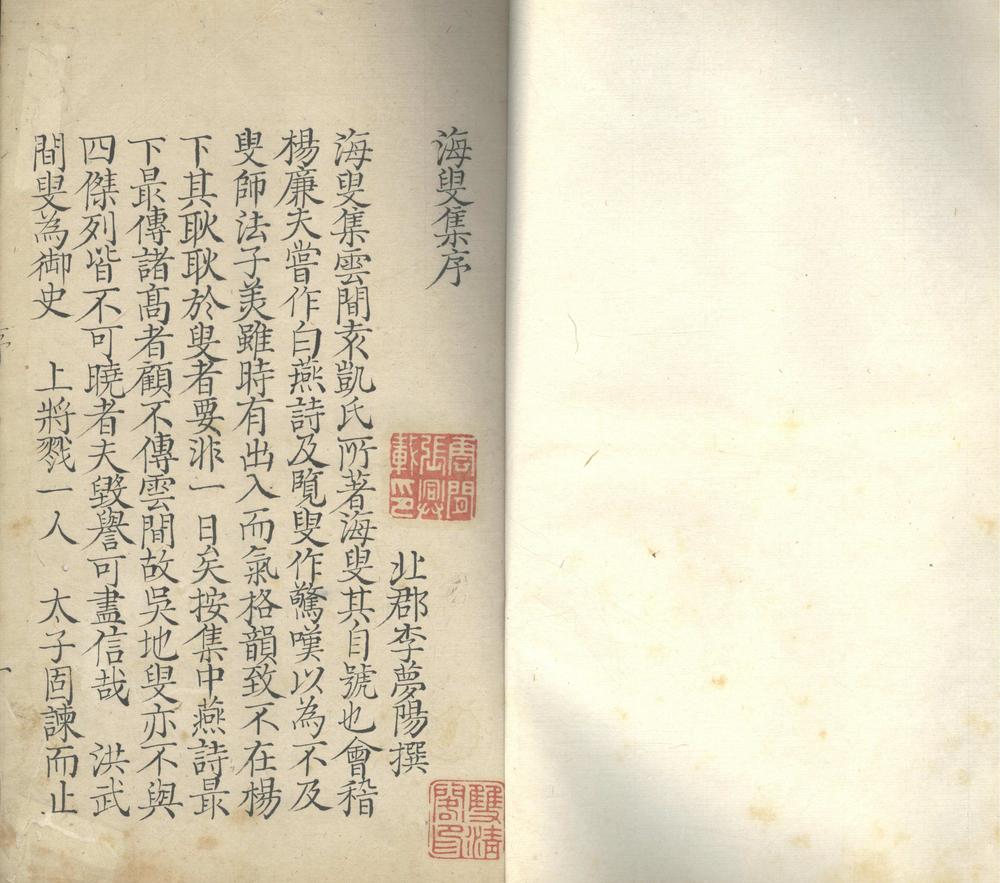 海叟集序
北郡李夢陽撰
海叟集雲間袁凱氏所著海叟其自號也會稽
楊廉夫嘗作白燕詩及覽叟作驚嘆以為不及
叟師法子美雖時有出入而氣格韻致不在楊
下其耿耿於叟者要非一日矣按集中燕詩最
下最傳諸高者顧不傳雲間故吳地叟亦不與
四傑列皆不可曉者夫毀譽可盡信哉 洪武
間叟為御史 上將戮一人 太子固諫而止
唐閏張興載印
雙濤閣印